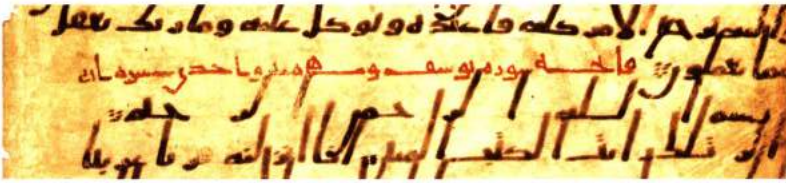 واليه يرجع الامر كله فاعبده وتوكل عليه وما ربك بغفل
عما تعملون فاتحه سوره يوسف وهي ميه واحدى عشره
بسم الله الرحمن الرحيم
الر تلك ايت الكتب المبين انا انزلنه قرنا عربيا